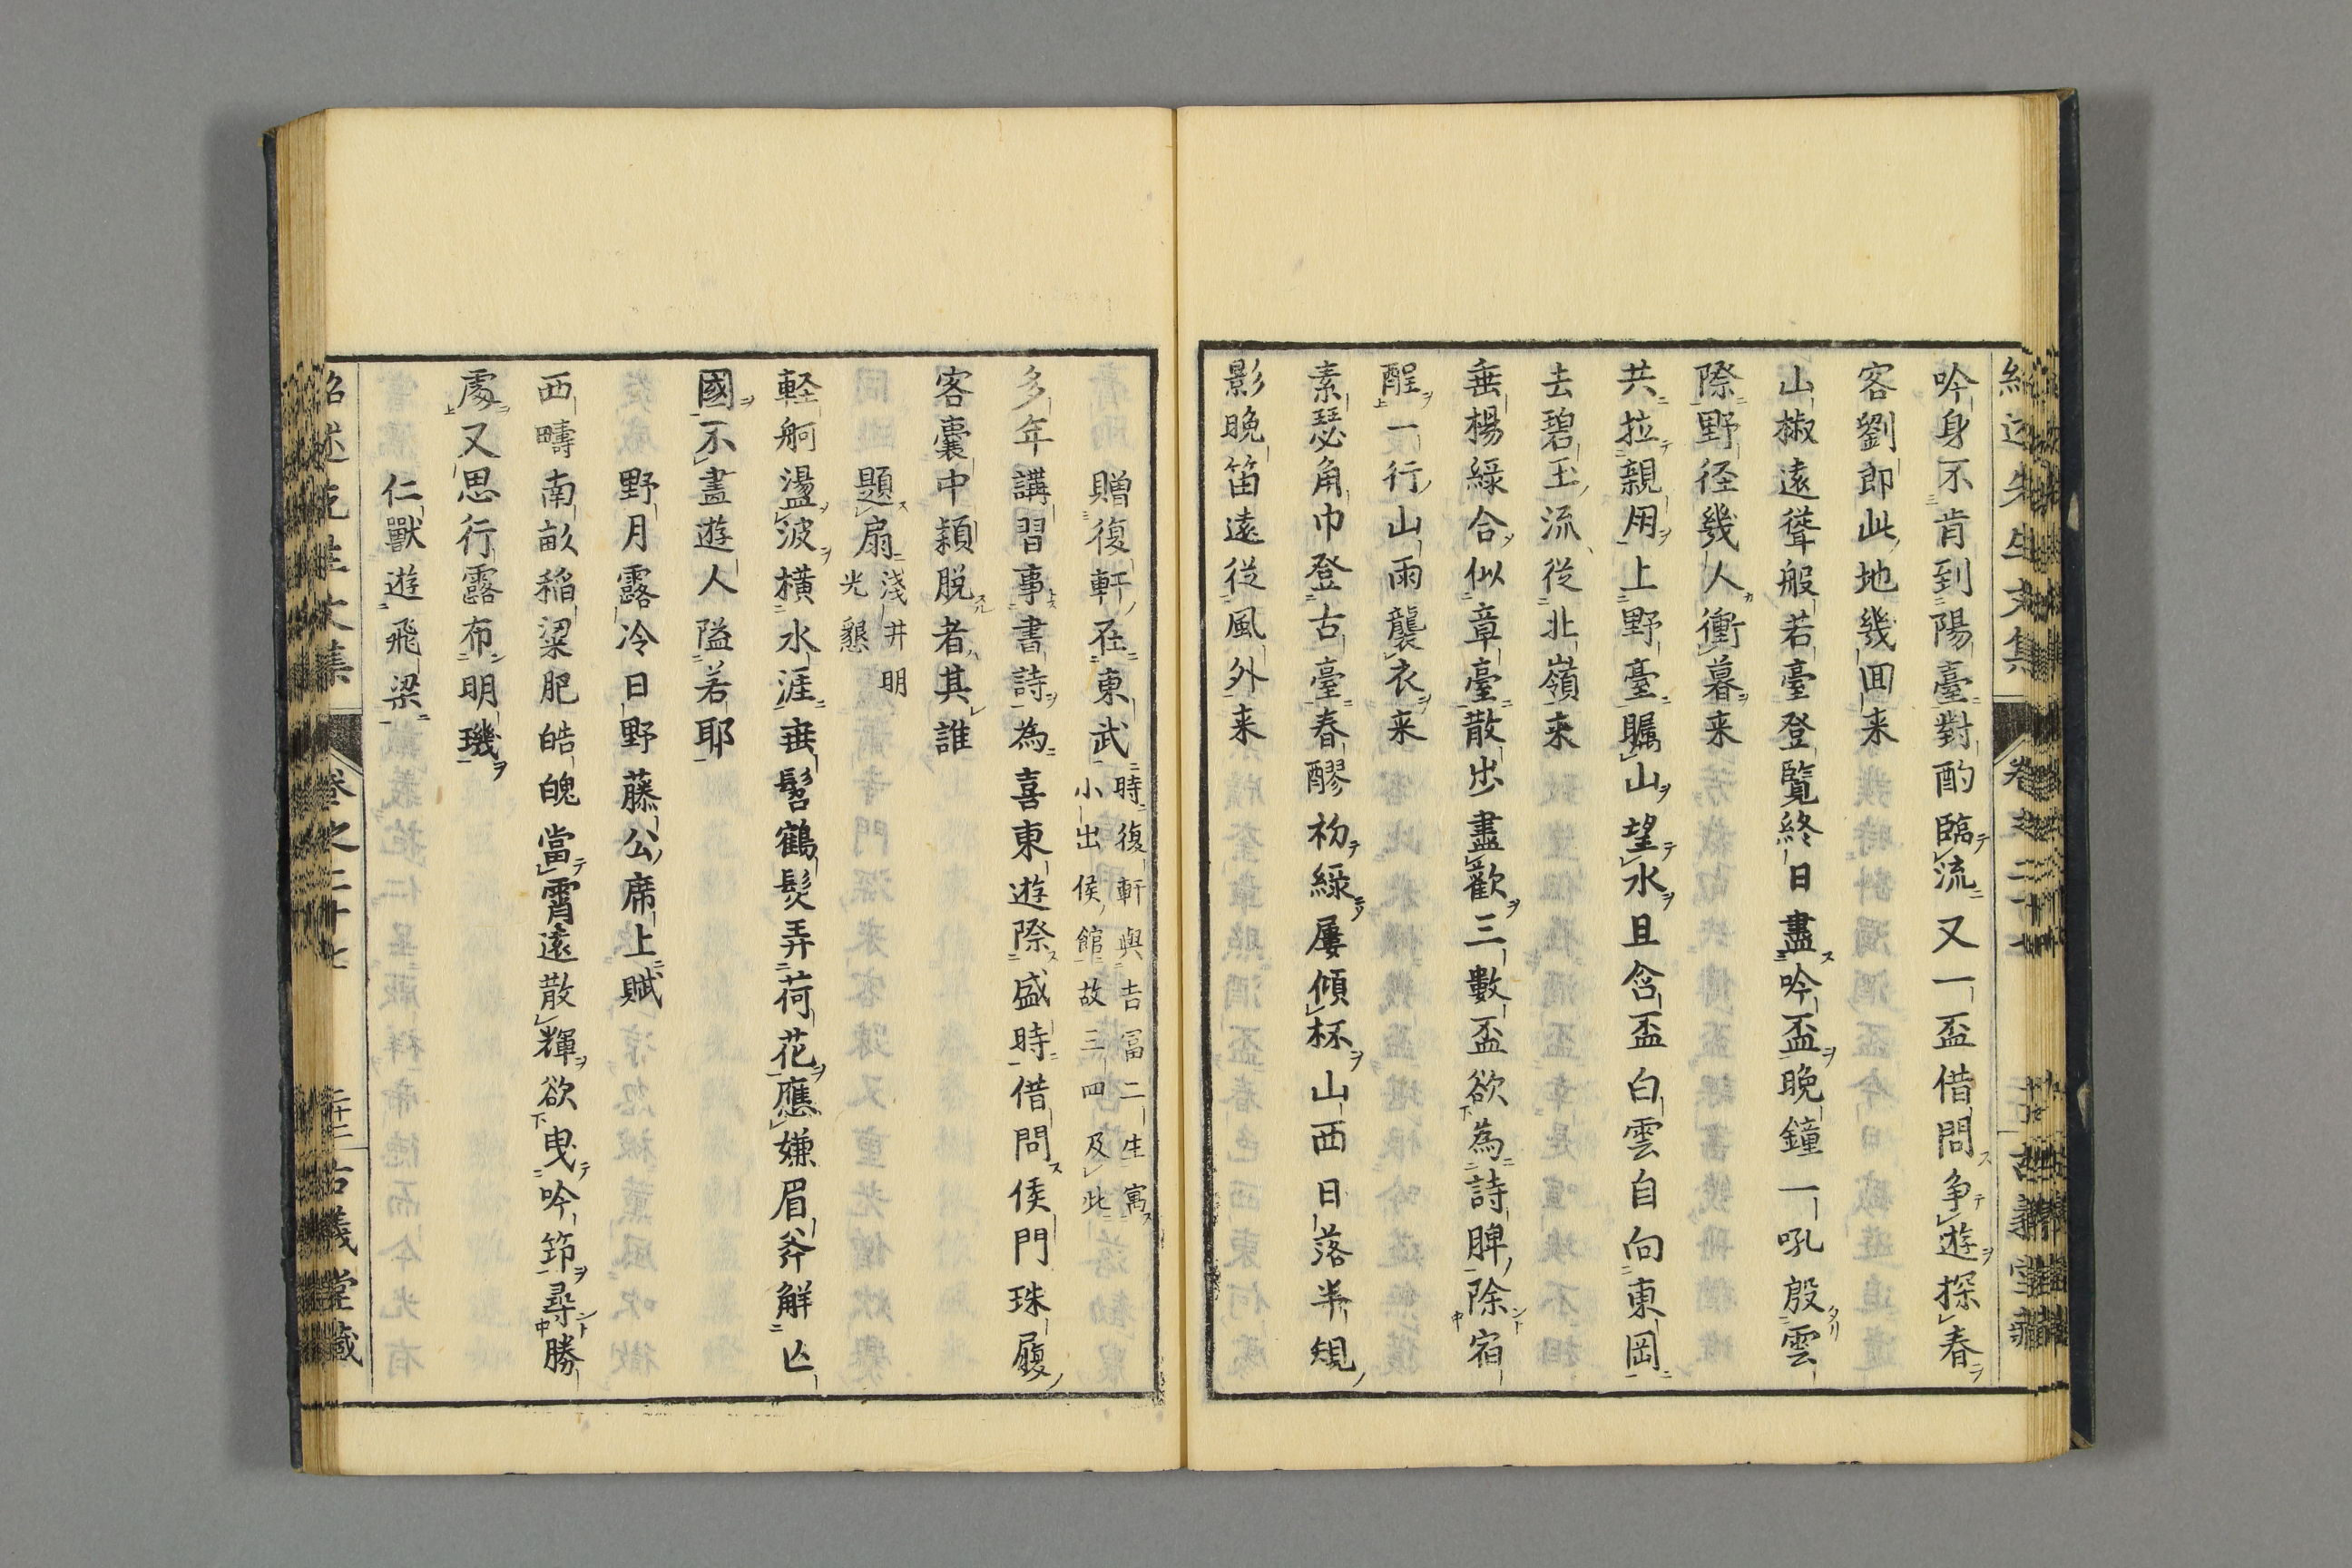 吟身不肯到陽臺對酌臨流又一盃借問争遊探春
客劉郎此地幾囬来
山椒遠聳般若臺登覧終日盡吟盃晩鐘一吼殷雲
際野径幾人衝暮来
共拉親用上野臺矚山望水且含盃白雲自向東岡
去碧玉流従北嶺来
垂楊緑合似章臺散步盡歡三數盃欲為詩脾除宿
酲一行山雨襲衣来
素瑟角巾登古臺春醪初緑屢傾杯山西日落半規
影晩笛遠従風外来
贈復軒在東武時復軒與吉冨二生寓
小出侯館故三四及此
多年講習事書詩為喜東遊際盛時借問侯門珠履
客囊中穎脱者其誰
題扇淺井明
光懇
軽舸盪波横水涯垂髫鶴髪弄荷花應嫌眉斧解亾
國不盡遊人隘若耶
野月露冷日野藤公席上賦
西疇南畝稲粱肥皓魄當霄遠散輝欲曳吟筇尋勝
處又思行露布明璣
仁獸遊飛梁
紹述先生文集 卷之二十七 二十二 古義堂藏